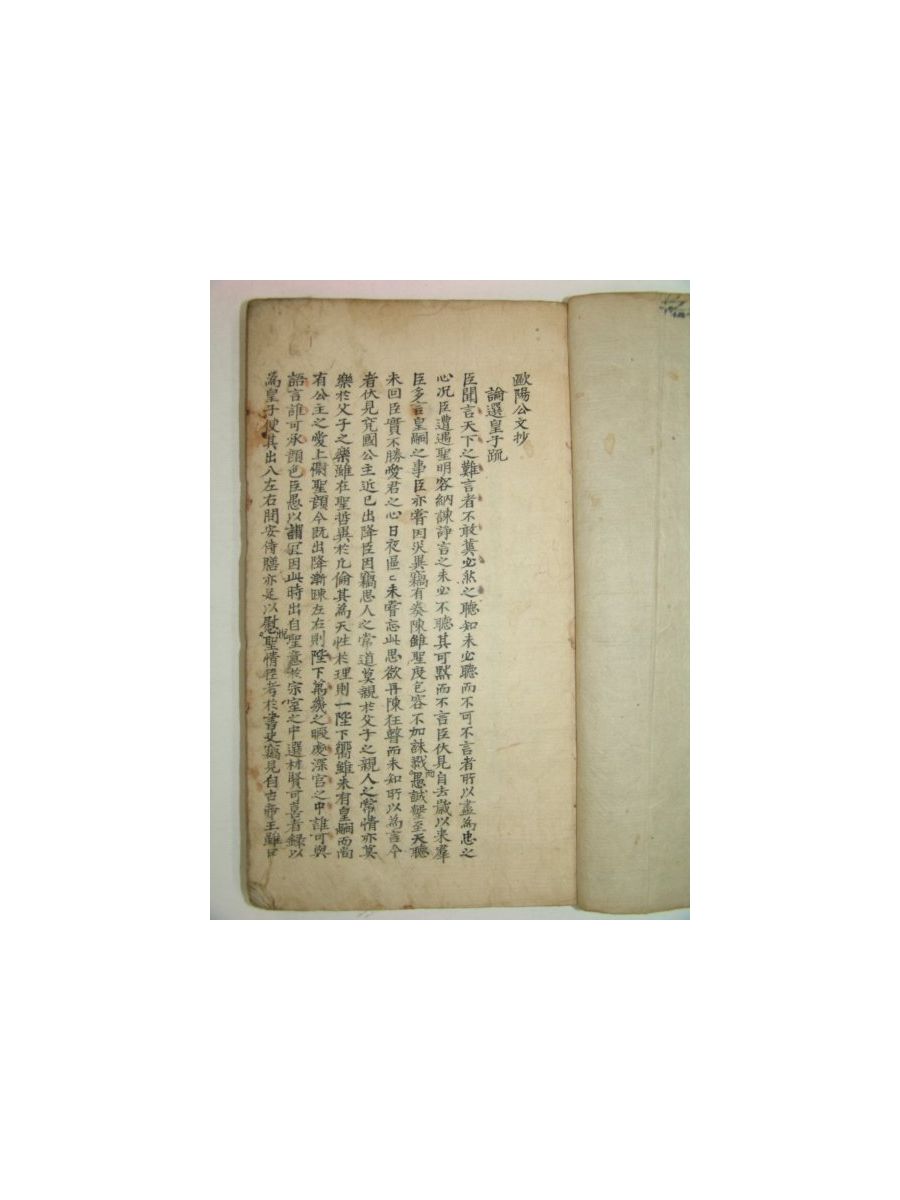 歐陽公文抄
論選皇子疏
臣聞言天下之難言者不敢冀必然之聽知未必聽而不可不言者所以盡為忠之
心况臣遭遇聖明容納諫諍言之未必不聽其可默而不言臣伏見自去歲以來羣
臣多言皇嗣之事臣亦嘗因災異竊有奏陳雖聖度包容不加誅戮愚誠懇至天聽
未回臣實不勝愛君之心日夜區〻未嘗忘此思欲再陳狂瞽而未知所以為言今
者伏見兖國公主近已出降臣因竊思人之常道莫親於父子之親人之常情亦莫
樂於父子之樂雖在聖哲異於凡倫其為天性於理則一陛下嚮雖未有皇嗣而尚
有公主之愛上慰聖顔今既出降漸踈左右則陛下萬幾之暇處深宮之中誰可與
語言誰可承顔色臣愚以謂宜因此時出自聖意於宗室之中選材賢可喜者録以
為皇子使其出入左右問安侍膳亦足以慰聖情臣考於書史竊見自古帝王雖曰